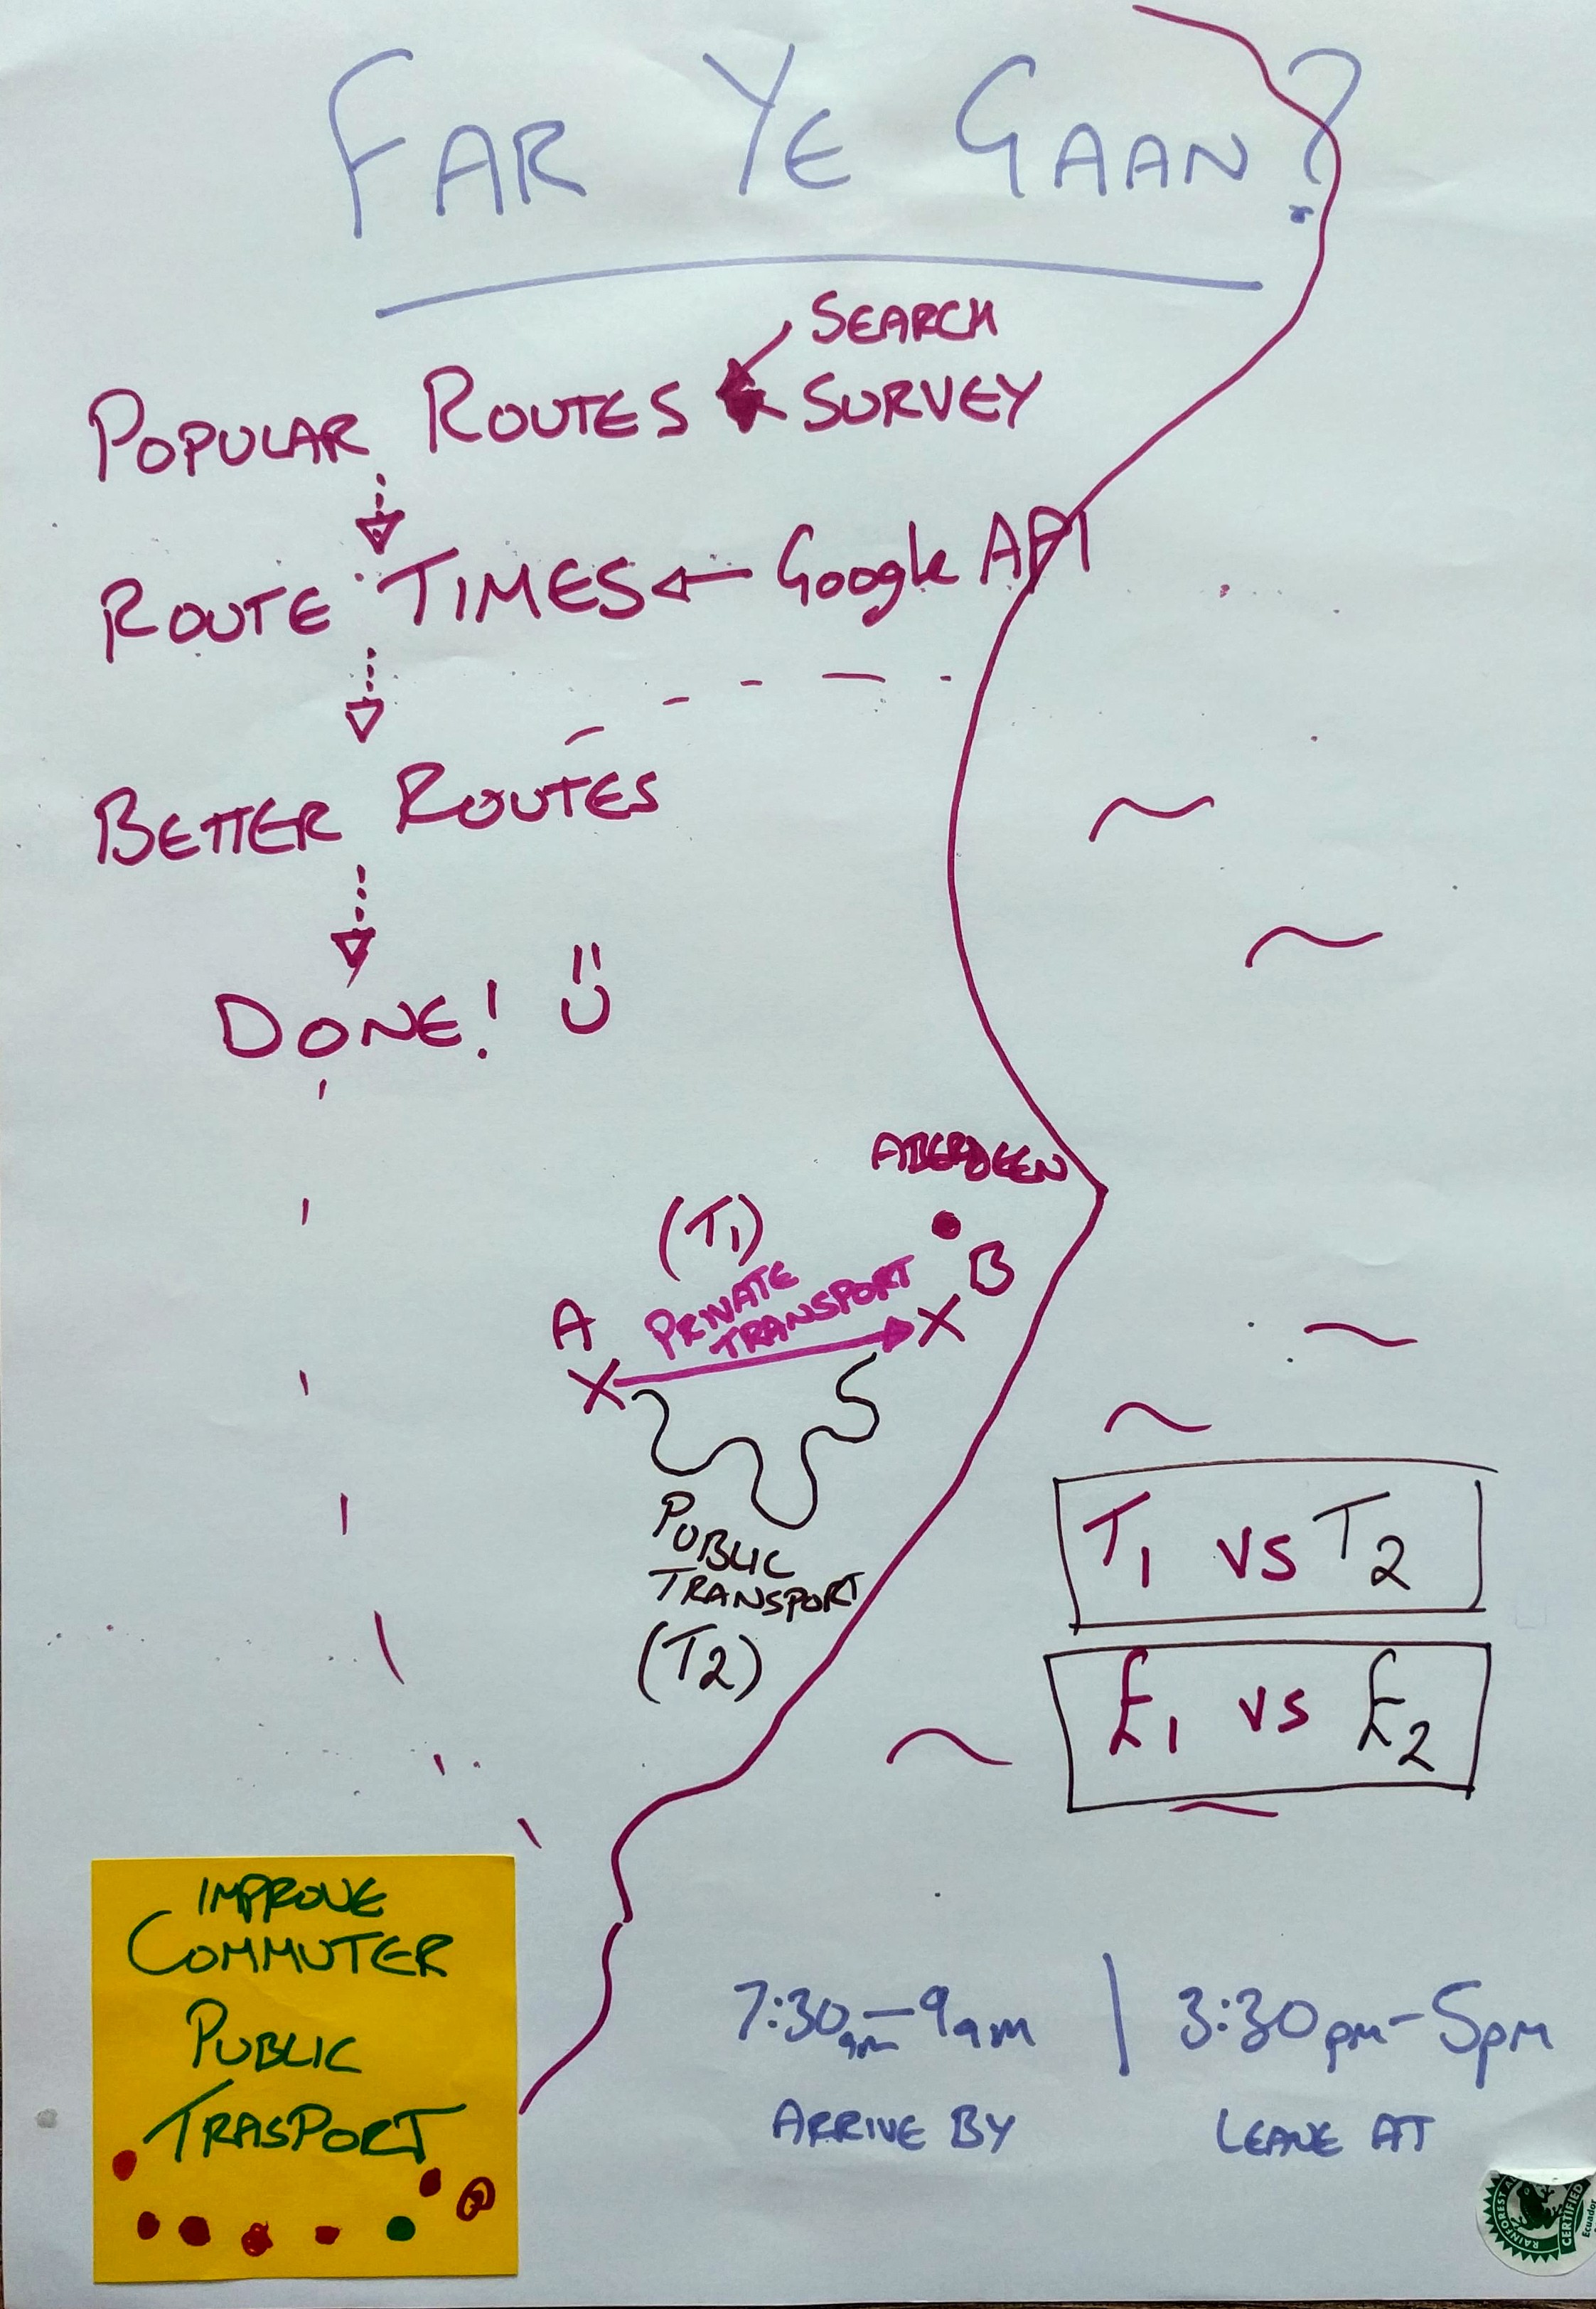 FAR YE GAAN?
SEARCH
POPULAR ROUTES SURVEY
ROUTE TIMES Google API
BETTER ROUTES
DONE!
ABERDEEN
(T1)
B
PRIVATE
TRANSPORT
A
PUBLIC
TRANSPORT
(T2)
T1 vs T2
£1 vs £2
IMPROVE
COMMUTER
PUBLIC
TRASPORT
7:30am-9am | 3:30pm-5pm
ARRIVE BY LEAVE AT
RAINFOREST A
CERTIFIED
Ecuador